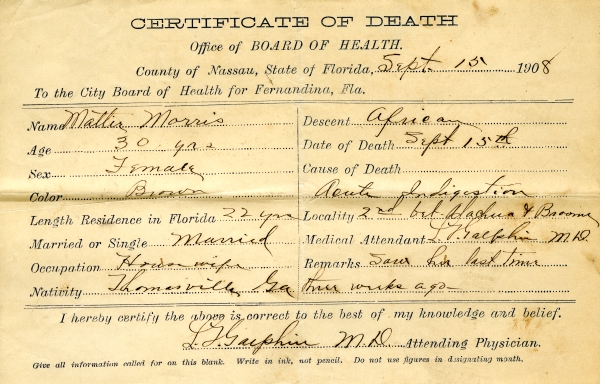 CERTIFICATE OF DEATH
Office of BOARD OF HEALTH.
County of Nassau, State of Florida, Sept. 15 1908
To the City Board of Health for Fernandina, Fla.
Name Mattie Morris
Age 30 yrs
Sex Female
Color Brown
Length Residence in Florida 22 yrs
Married or Single Married
Occupation House wife
Nativity Thomasville, Ga
Descent African
Date of Death Sept 15th
Cause of Death
Acute Indigestion
Locality 2nd bet Alachua & Broome
Medical Attendant Galphin M.D.
Remarks Saw her last time
three weeks ago
I hereby certify the above is correct to the best of my knowledge and belief.
Galphin M.D. Attending Physician.
Give all information called for on this blank. Write in ink, not pencil. Do not use figures in designating month.